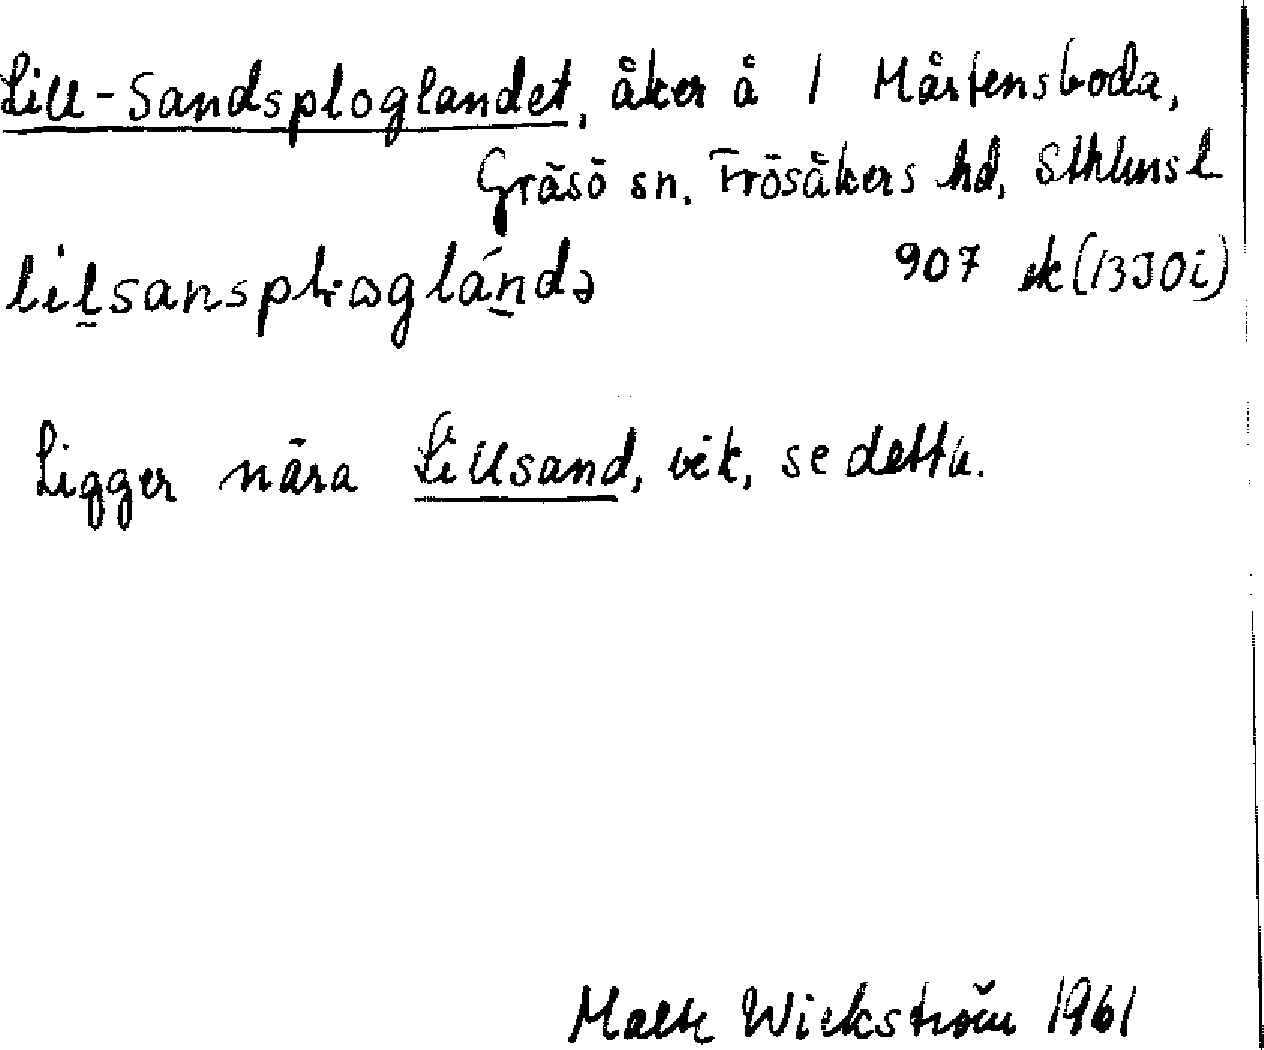 Lill-Sandsploglandet, åker å 1 Mårtensboda,
Gräsö sn, Frösåkers hd, Sthlms l
907 ek (13J0i)
Ligger nära Lillsand, vik, se detta.
Malte Wickström 1961